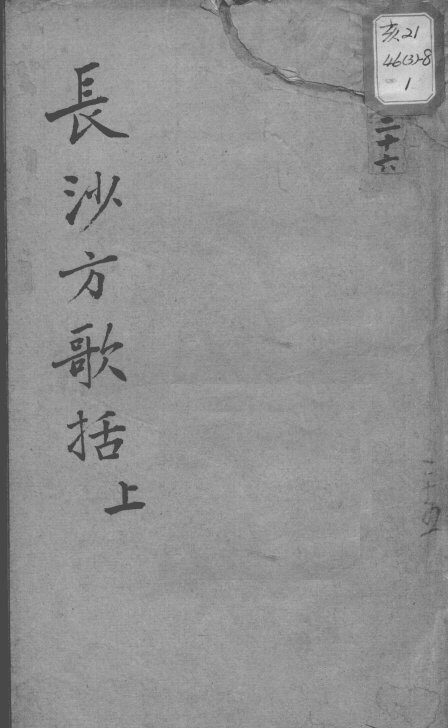 亥21
46(3)-8
1
二十六
長沙方歌括
上